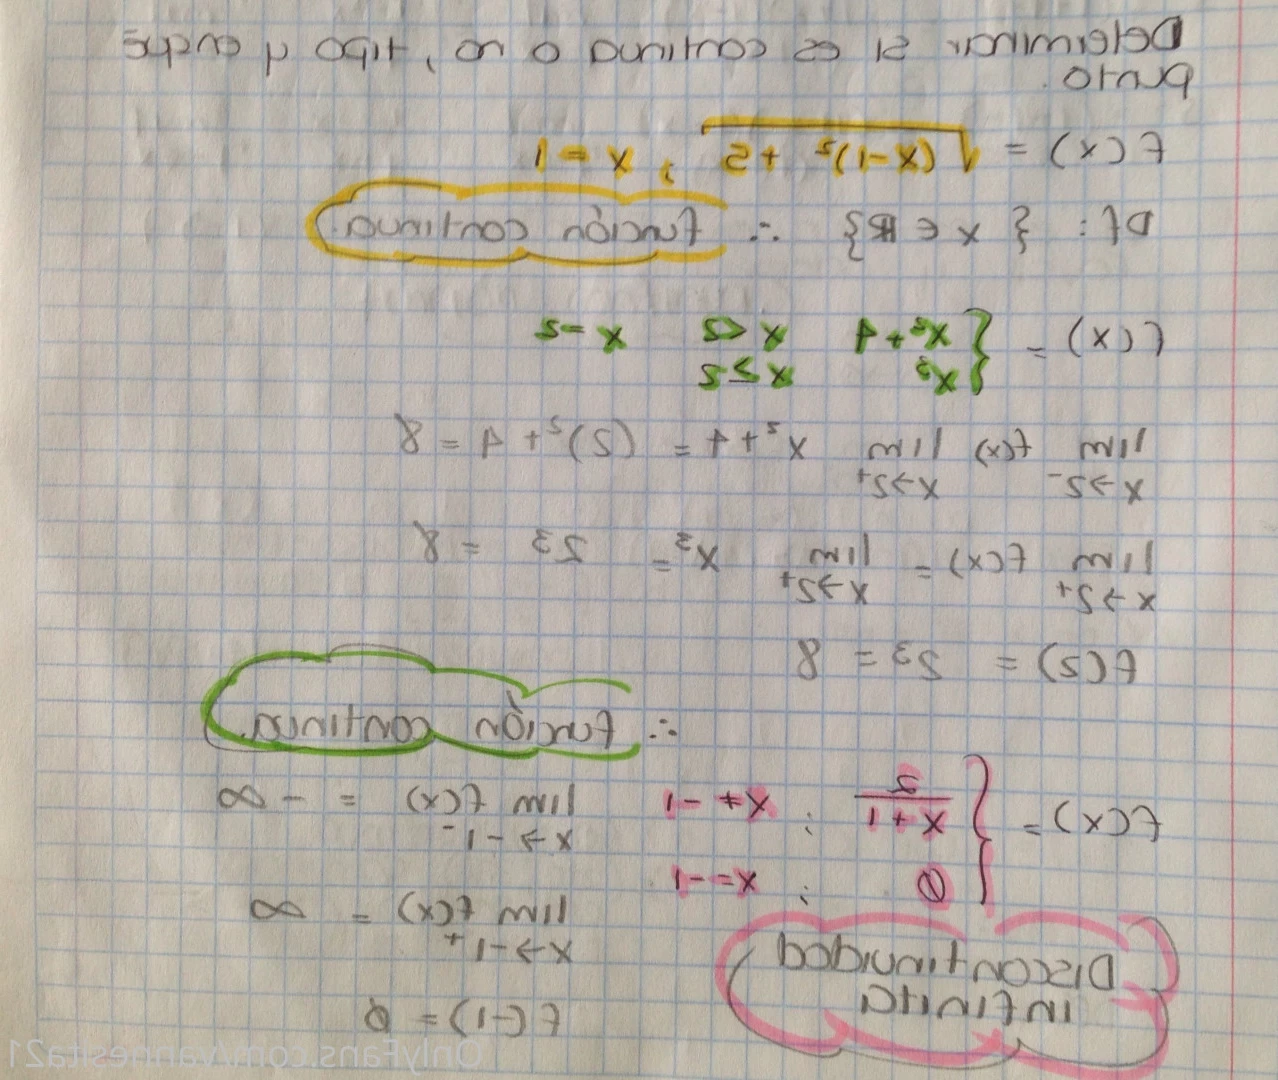 Determinar si es continua o no, tipo y en que
punto.
f(x) = √(x-1)² + 2 ; x = 1
Df: { x ∈ ℝ} ∴ función continua.
f(x) = { x² + 4 x < 2 x = 2
x³ x ≥ 2
lim f(x) lim x² + 4 = (2)² + 4 = 8
x→2⁻ x→2⁺
lim f(x) = lim x³ = 2³ = 8
x→2⁺ x→2⁺
f(2) = 2³ = 8
∴ función continua.
f(x) = { 2/(x+1) ; x ≠ -1 lim f(x) = -∞
x→-1⁻
0 ; x = -1 lim f(x) = ∞
x→-1⁺
Discontinuidad
infinita
f(-1) = 0
OnlyFans.com/vannesita21